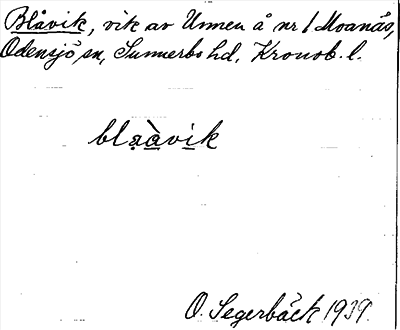 Blåvik, vik av Unnen å nr 1 Moanäs,
Odensjö sn, Sunnerbo hd, Kronob. l.
blạạ̀vi̱k
O. Segerbäck 1939.